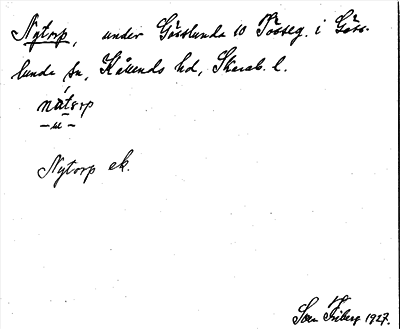 Nytorp, under Görslunda 10 Tosseg. i Görs-
lunda sn, Kållends hd, Skarab. l.
nųtɔrp
Nytorp ek.
Sven Friberg 1927.